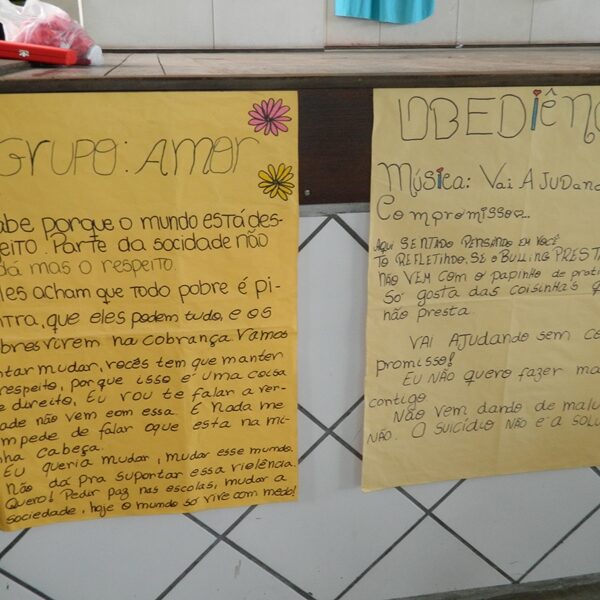 GRUPO: AMOR
abe porque o mundo está des-
eito. Parte da socidade não
dá mas o respeito.
les acham que todo pobre é pi-
ntra, que eles podem tudo, e os
obres virem na cobrança. Vamos
ntar mudar, voces tem que manter
respeito, porque isso é uma coisa
e direito. Eu vou te falar a ver-
dade não vem eom essa. E Nada me
mpede de falar oque esta na mi-
nha cabeça.
Eu queria mudar, mudar esse mundo.
Não da pra suportar essa violência.
Quero! Pedir paz nas escolas, mudar a
sociedade, hoje o mundo so vive com medo!
OBEDIÊNC
Música: Vai AJudando
Compromisso...
Aqui SENTADO PENSANDO EM VOCÊ
TO REFLETINDO. SE O BULLING PRESTA
NÃO VEM COM O papinho de
Só gosta das coisinhas q
não presta.
VAI AJUDANDO sem co
promisso!
Eu NÃO quero fazer ma
contigo.
Não vem dando de malu
NÃO. O SUICÍDIO NÃO E A SOLU